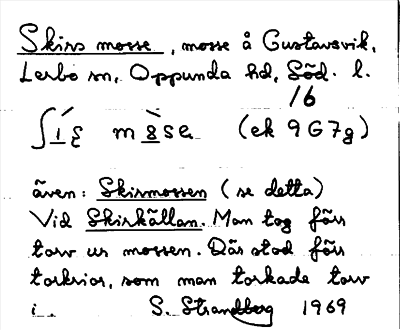 Skirs mosse, mosse å Gustavsvik,
Lerbo sn, Oppunda hd, Söd. l.
/6
(ek 9G7g)
även: Skirmossen (se detta)
Vid Skirkällan. Man tog förr
torv ur mossen. Där stod förr
torkrior, som man torkade torv
i. S. Strandberg 1969